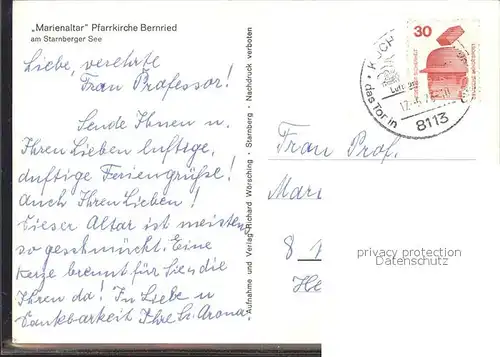 „Marienaltar" Pfarrkirche Bernried
am Starnberger See
Liebe, verehrte
Frau Professor!
Sende Ihnen u.
Ihren Lieben luftige,
duftige Feriengrüße!
auch Ihren Lieben!
Dieser Altar ist meistens
so geschmückt. Eine
Kerze brennt für Sie u. die
Ihren da! In Liebe u
Dankbarkeit Ihre Sr. Arona
Aufnahme und Verlag Richard Wörsching · Starnberg · Nachdruck verboten
30
das Tor in
8113
Frau Prof.
Mari
8
He
privacy protection
Datenschutz